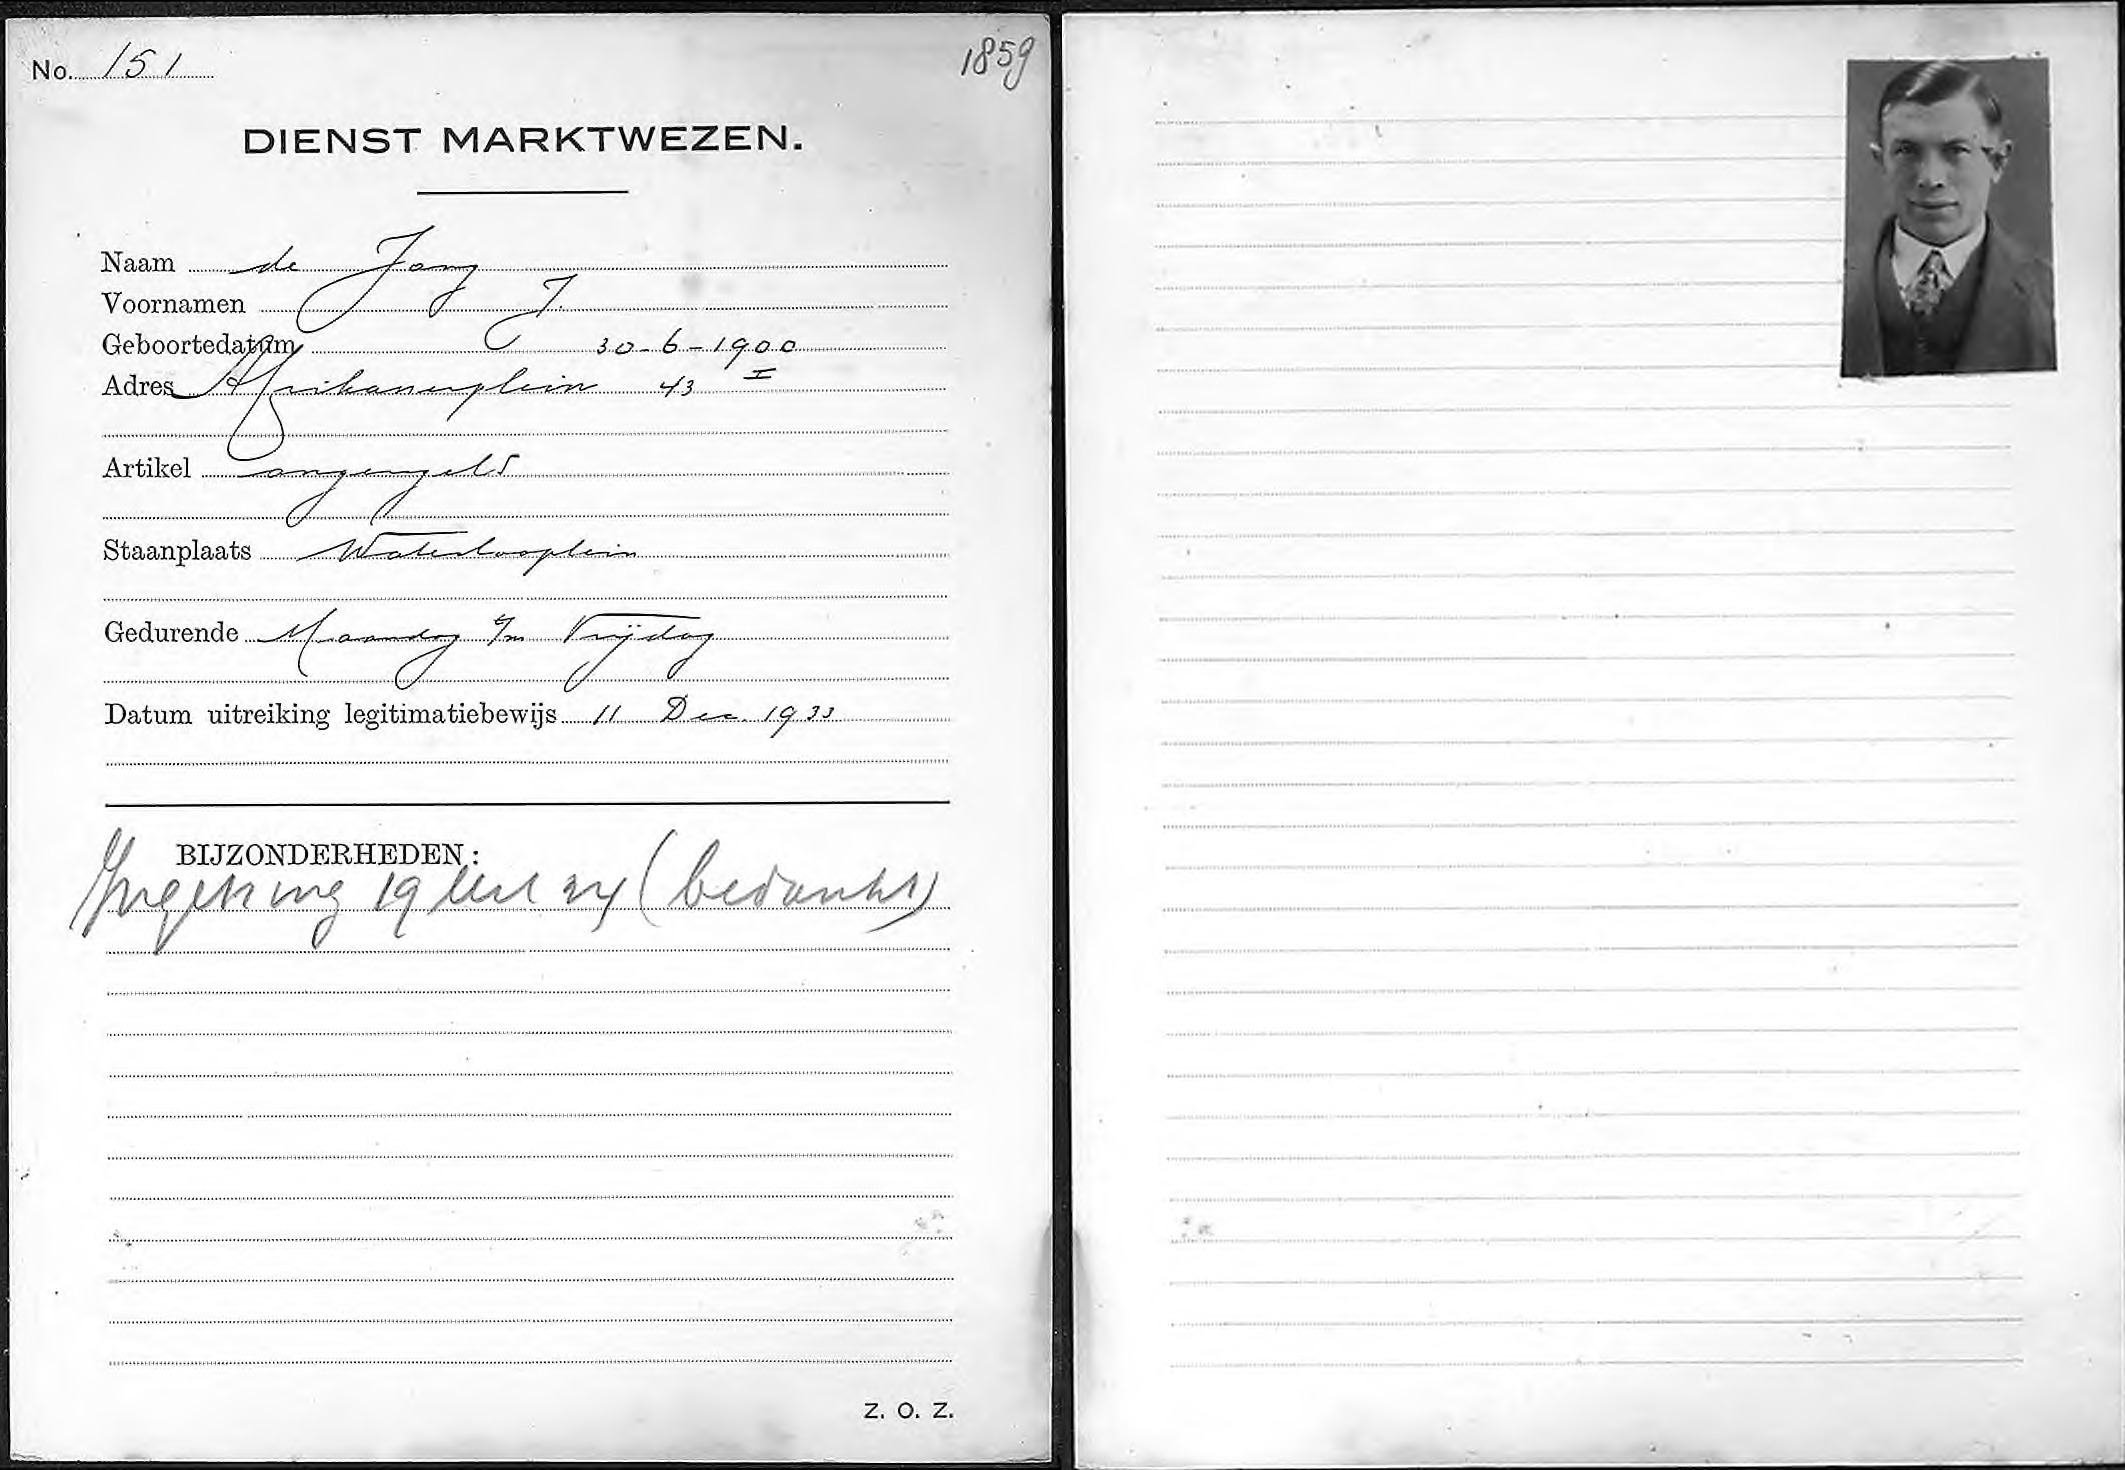 No. 151
1859
DIENST MARKTWEZEN.
Naam de Jong
Voornamen J.
Geboortedatum 30-6-1900
Adres Afrikanerplein 43 I
Artikel ongeregeld
Staanplaats Waterlooplein
Gedurende Maandag t/m Vrijdag
Datum uitreiking legitimatiebewijs 11 Dec. 1933
BIJZONDERHEDEN:
19 34 (bedankt)
Z. O. Z.